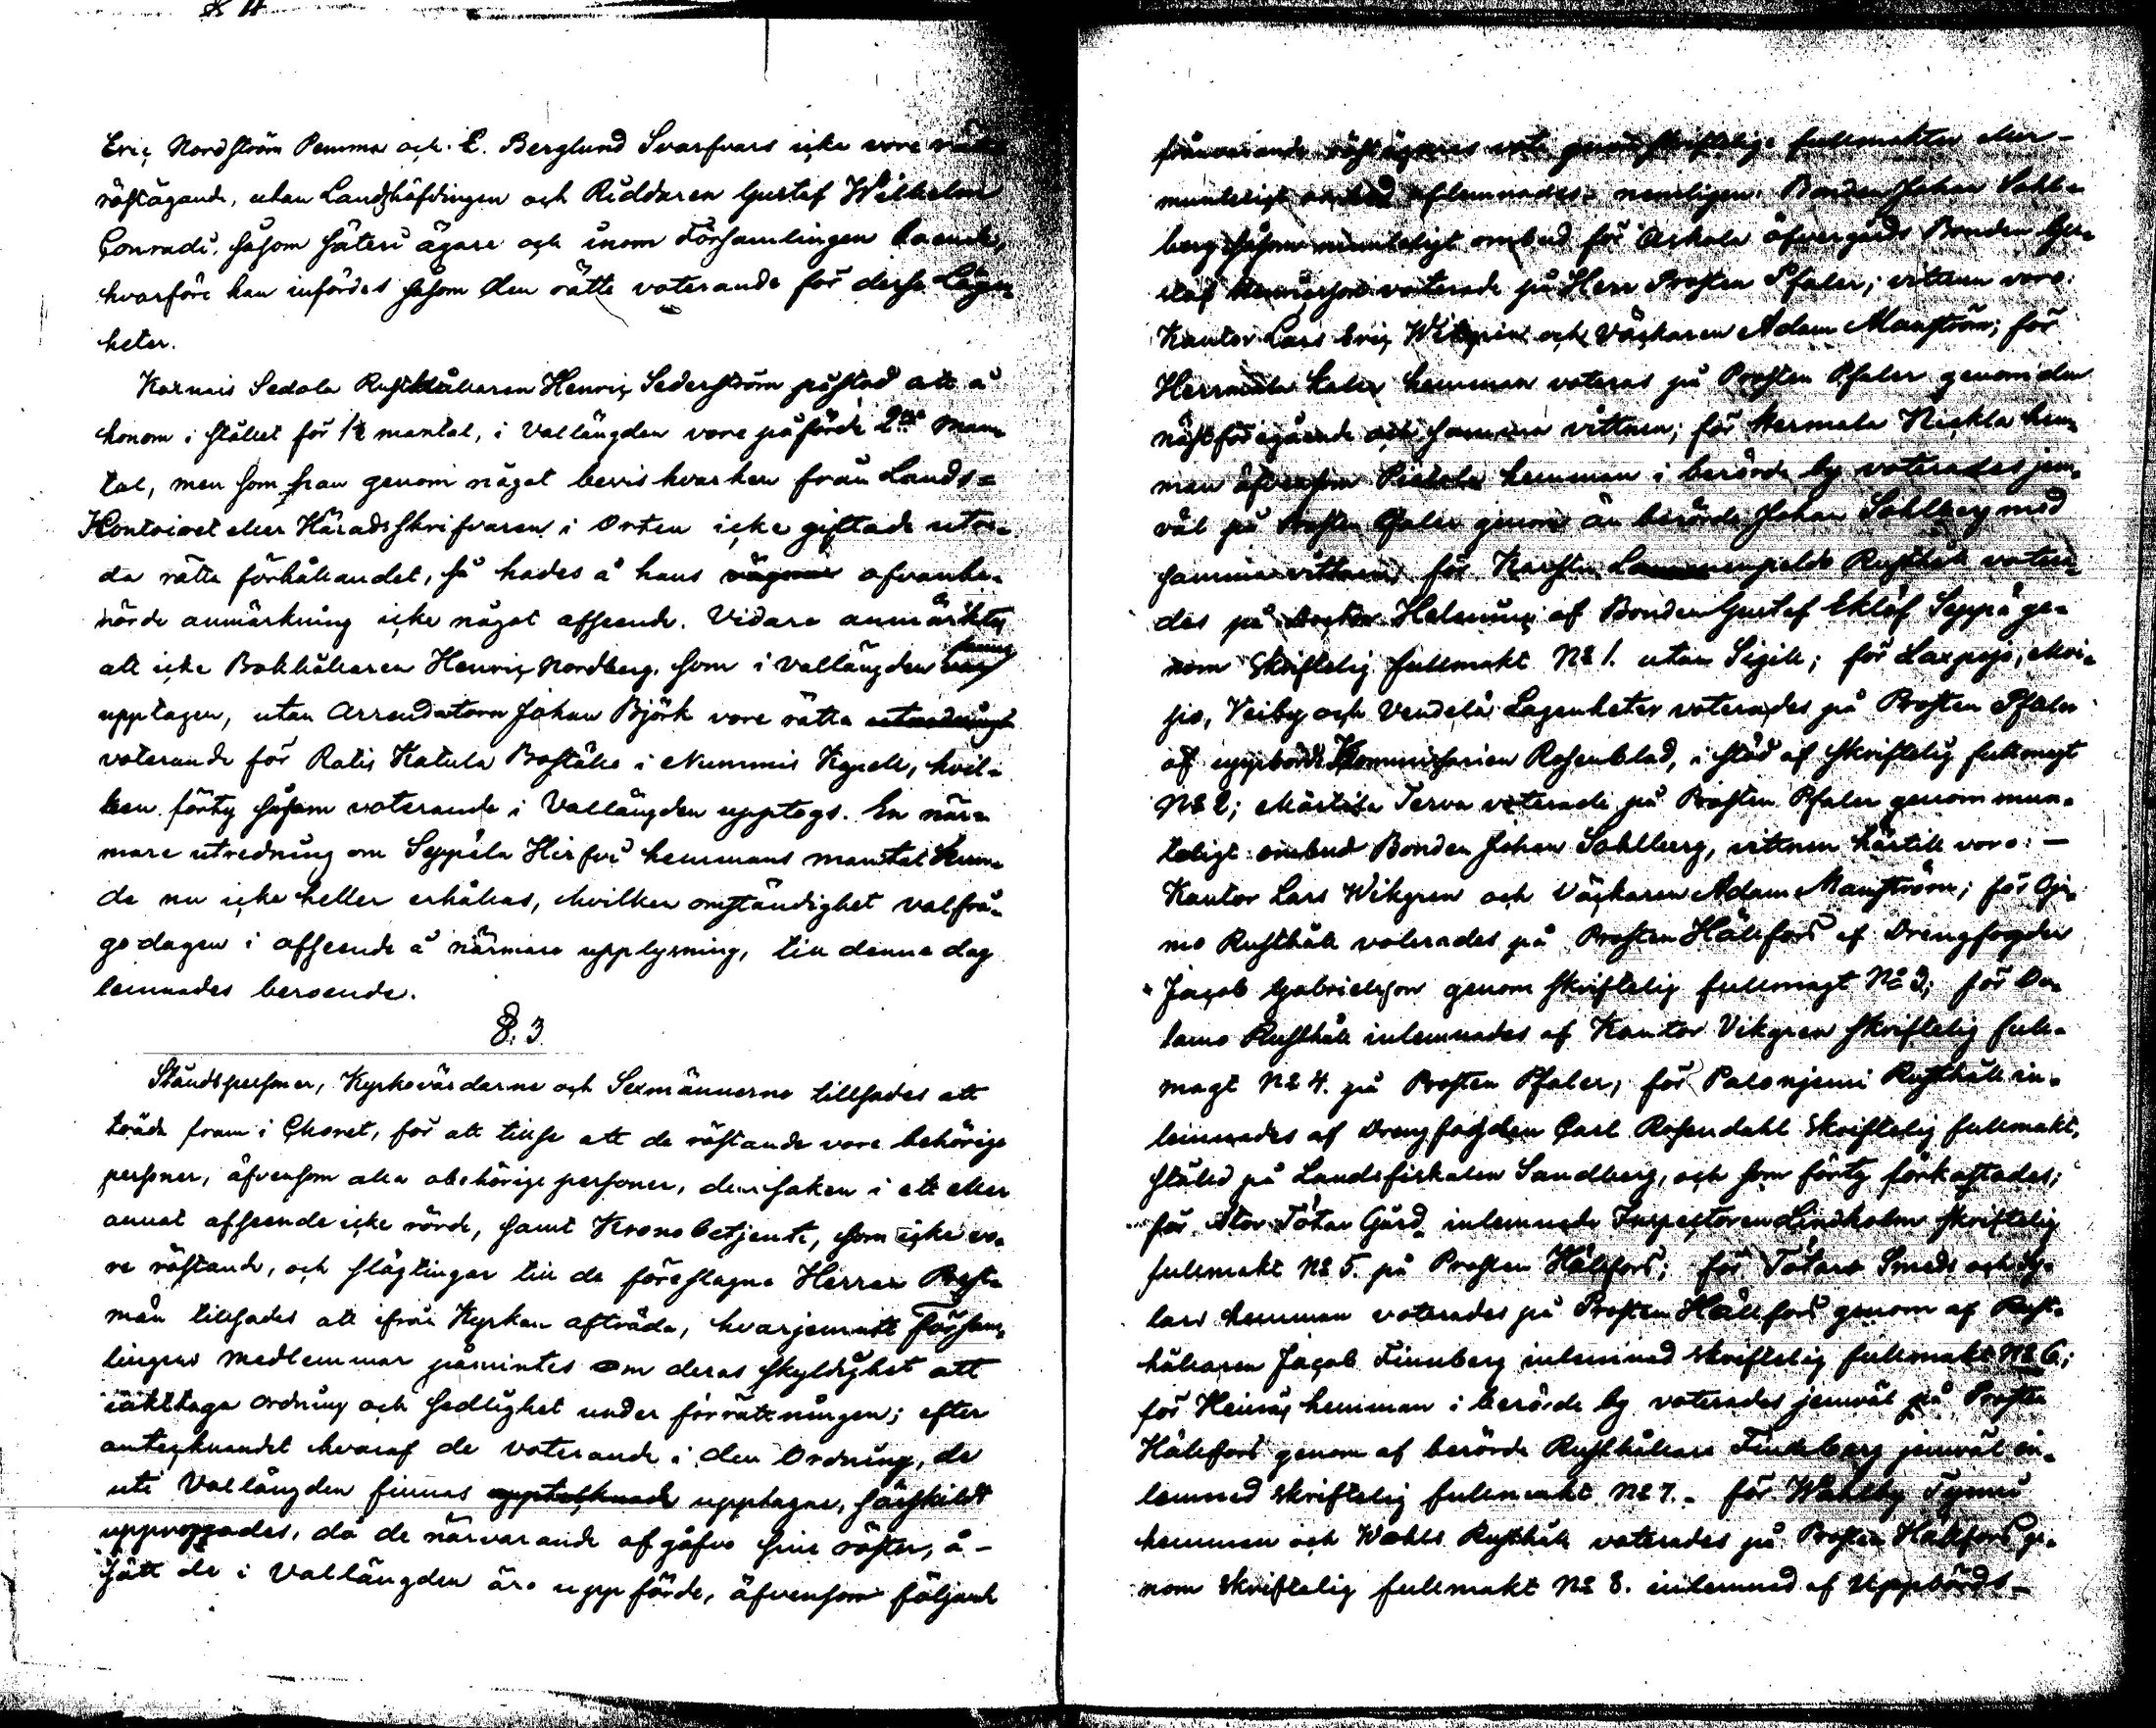 Eric Nordström Pemma och E. Berglund Svarfvars icke vore rätte
röstägande, utan Landshöfdingen och Riddaren Gustaf Wilhelm
Conradi, såsom säteri ägare och inom Församlingen boende,
hvarföre han infördes såsom den rätte voterande för desse Lägen-
heter.
Karnais Sedola Rusthållaren Henric Sederström påstod att å
honom i stället för 1½ mantal, i vallängden vore påförde 2ne man-
tal, men som han genom något bevis hvarken från Lands=
Kontoiret eller Häradsskrifvaren i Orten icke gittade utre-
da rätta förhållandet, så hades å hans vägnar ofvanbe-
rörde anmärkning icke något afseende. Vidare anmärktes
att icke Bokhållaren Henric Nordberg, som i vallängden finnes
upptagen, utan Arrendatorn Johan Björk vore rätta
voterande för Ratis Katula Boställe i Nummis Kapell, hvil-
ken förty såsom voterande i Vallängden upptogs. En när-
mare utredning om Seppälä Hirfvi hemmans mantal kun-
de nu icke heller erhållas, hvilken omständighet valfrå-
gedagen i afseende å närmare upplysning, till denna dag
lemnades beroende.
§. 3
Ståndspersoner, Kyrkovärdarne och Sexmännerne tillsades att
träda fram i Choret, för att tillse att de röstande vore behörige
personer, äfvensom alla obehörige personer, dem saken i ett eller
annat afseende icke rörde, samt Kronobetjente, som icke vo-
re röstande, och slägtingar till de föreslagne Herrar Prest-
män tillsades att ifrån Kyrkan afträda, hvarjemnte Försam-
lingens medlemmar påmintes om deras skyldighet att
iakttaga ordning och sedlighet under förrättningen; efter
anteknandet hvaraf de voterande i den Ordning, de
uti Vallängden finnas upptagne, särskildt
uppropades, då de närvarande afgåfvo sine röster, å-
sätt de i Vallängden äro uppförde, äfvensom följande
frånvarande röstägares vota genom skriftelige fullmakter eller
munteligt ombud aflemnades, nemligen: Bonden Johan Sahl-
berg såsom munteligt ombud för Askola öfvergårds Bonden Gu-
staf voterade på Herr Prosten Pfaler; vittnen voro:
Kantor Lars Eric Wikgren och Väckaren Adam Manström; för
Hermala hemman voteras på Prosten Pfaler genom den
nästföregående och samma vittnen; för Hermala Nickla hem-
man äfvensom hemman i berörde by voterades jem-
väl på Prosten Pfaler genom än berörde Johan Sahlberg med
samma vittnen; för Rusthåll votera-
des på Helsning af Bonden Gustaf Eklöf Seppä ge-
nom Skriftelig fullmakt No 1. utan Sigill; för Laxpojo,
Veiby och Vendelä Lägenheter voterades på Prosten Pfaler
af uppbörds Kommissarien Rosenblad, i stöd af skriftelig fullmagt
No 2; Märtila Terva voterade på Prosten Pfaler genom mun-
teligt ombud Bonden Johan Sahlberg, vittnen härtill voro: —
Kantor Lars Wikgren och Väckaren Adam Manström; för
Rusthåll voterades på Prosten Hällfors af Drengfogden
Jacob Gabrielsson genom skriftelig fullmagt No 3; för
Rusthåll inlemnades af Kantor Vikgren skriftelig full-
magt No 4. på Prosten Pfaler; för Palonjemi Rusthåll in-
lemnades af Drengfogden Carl Rosendahl skriftelig fullmakt,
ställd på Landsfiskalen Sandberg, och som förty förkastades;
för Stor Tötar Gård inlemnade Inspectoren Lindholm skriftelig
fullmakt No 5. på Prosten Hällfors; för Tötars Smeds och
lars hemman voterades på Prosten Hällfors genom af Rust-
hållaren Jacob Finnberg inlemnad skriftelig fullmakt No 6;
för hemman i berörde by voterades jemväl på Prosten
Hällfors genom af berörde Rusthållare jemväl in-
lemnad skriftelig fullmakt No 7. - för Wahlby
hemman och Wahls Rusthåll voterades på Prosten Hällfors ge-
nom skriftelig fullmakt No 8. inlemnad af Uppbörds-